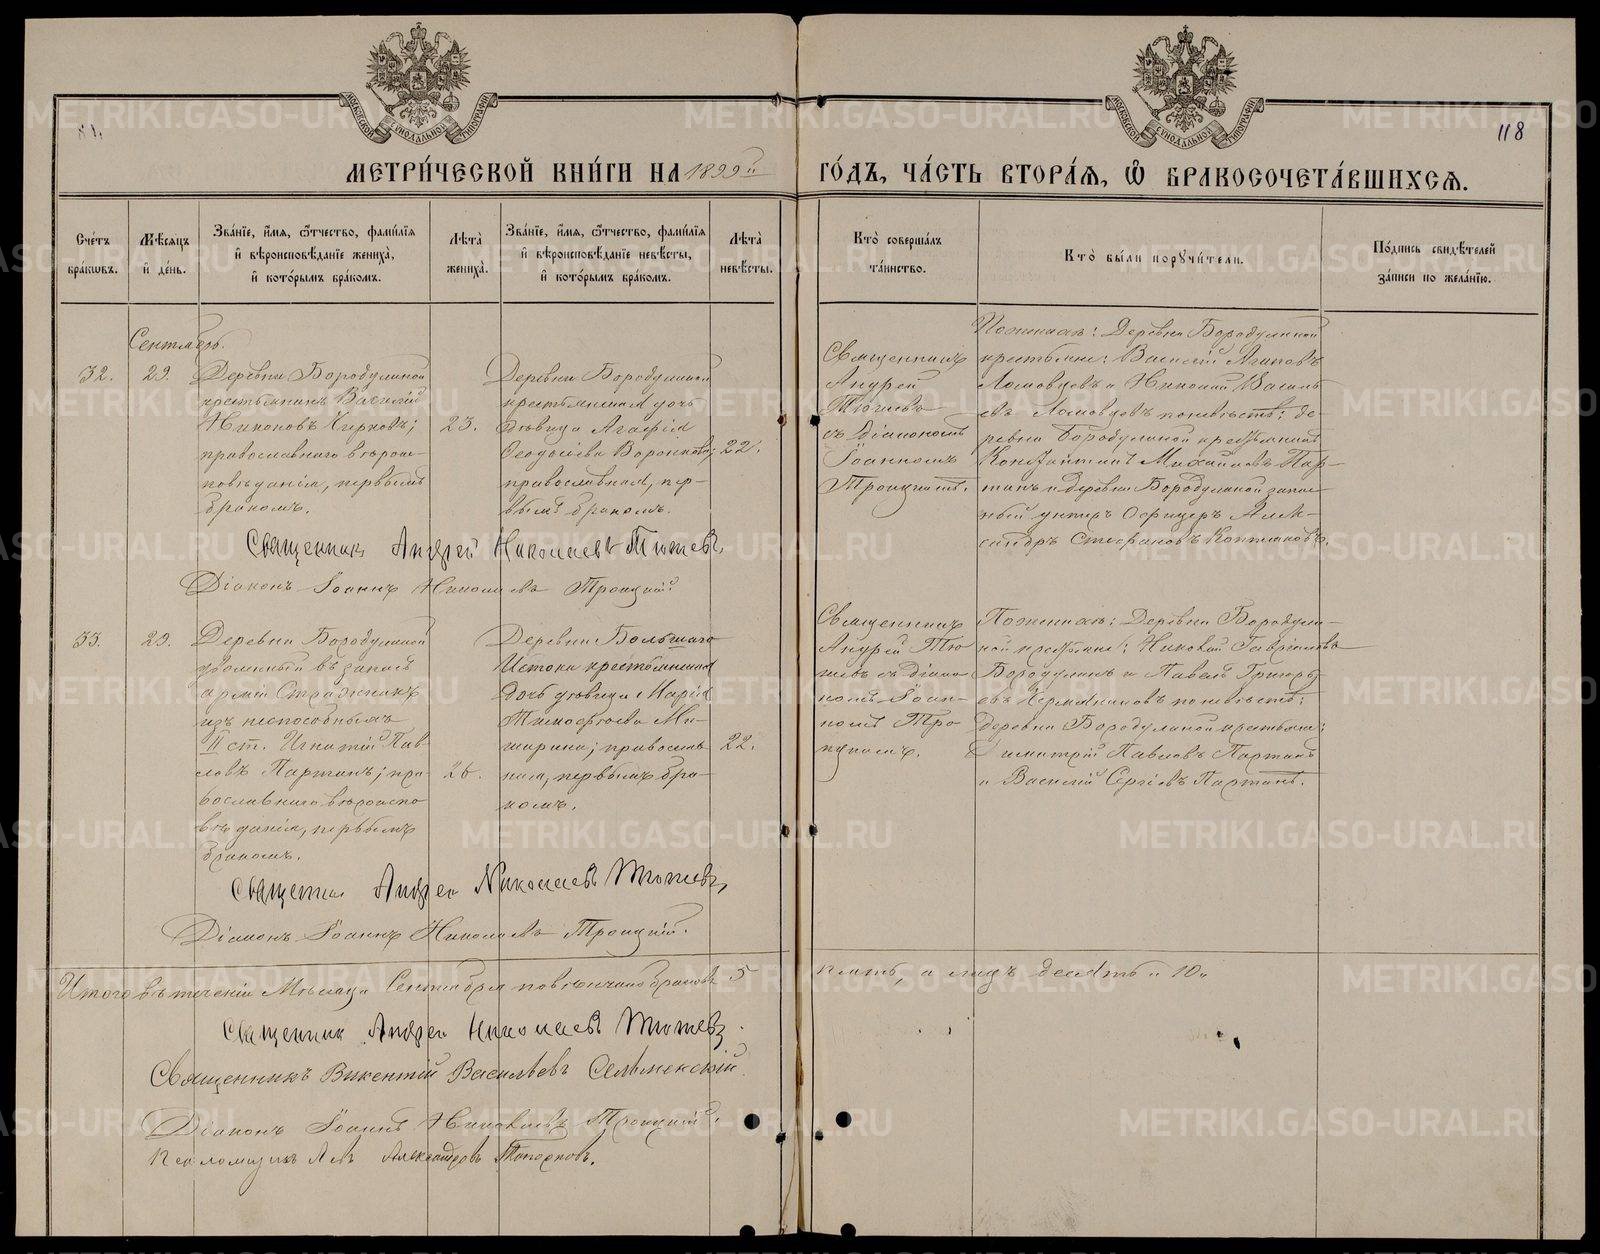 118
МОСКОВСКОЙ СѴНОДАЛЬНОЙ ТИПОГРАФІИ
МОСКОВСКОЙ СѴНОДАЛЬНОЙ ТИПОГРАФІИ
МЕТРИ́ЧЕСКОЙ КНИ́ГИ НА 1899й ГО́ДЪ, ЧА́СТЬ ВТОРА́Ѧ, Ѡ҆ БРАКОСОЧЕТА́ВШИХСѦ.
Сче́тъ бра́кѡвъ.
Мѣ́сѧцъ и҆ де́нь.
Зва́нїе, и҆́мѧ, ѻ҆́тчество, фами́лїѧ и҆ вѣроисповѣ́данїе жениха̀, и҆ кото́рымъ бра́комъ.
Лѣта̀ жениха̀.
Зва́нїе, и҆́мѧ, ѻ҆́тчество, фами́лїѧ и҆ вѣроисповѣ́данїе невѣ́сты, и҆ кото́рымъ бра́комъ.
Лѣта̀ невѣ́сты.
Кто̀ соверша́лъ та́инство.
Кто̀ бы́ли порꙋчи́тели.
По́дпись свидѣ́телей за́писи по жела́нїю.
Сентябрь.
32.
29.
Деревни Бородулиной
крестьянинъ Василий
Никоновъ
православнаго вѣроис-
повѣданія, первымъ
бракомъ.
23.
Деревни Бородулиной
крестьянская дочь
дѣвица Агафія
Ѳеодосіева Воронкова;
православная, пер-
вымъ бракомъ.
22.
Священникъ
Андрей
Тюшевъ
съ Діакономъ
Іоанномъ
Троицкимъ.
По женихѣ: Деревни Бородулиной
крестьяне: Василій Агаповъ
Ломовцевъ и Николай Василь-
евъ Ломовцевъ по невѣстѣ: де-
ревни Бородулиной крестьянинъ
Константинъ Михайловъ Пар-
тинъ и деревни Бородулиной запас-
ный унтеръ Офицеръ Алек-
сандръ Стефановъ
Священник Андрей Николаевъ Тюшевъ,
Діаконъ Іоаннъ Николаевъ Троицкій.
33.
29.
Деревни Бородулиной
уволенный въ запасъ
арміи Стражникъ
изъ неспособныхъ
II ст. Игнатій Пав-
ловъ Партинъ; пра-
вославнаго вѣроиспо
вѣданія, первымъ
бракомъ.
26.
Деревни Большаго
Истока крестьянская
дочь дѣвица Марія
Тимофеева Ми-
шарина; православ-
ная, первымъ бра-
комъ.
22.
Священникъ
Андрей Тю
шевъ съ Діако
номъ Іоан-
номъ Тро
ицкимъ.
По женихѣ: Деревни Бородули-
ной крестьяне: Николай Гавріиловъ
Бородулинъ и Павелъ Григорь
евъ по невѣстѣ:
деревни Бородулиной крестьяне:
Димитрій Павловъ Партинъ
и Василій Сергіевъ Партинъ.
Священник Андрей Николаевъ Тюшевъ,
Діаконъ Іоаннъ Николаевъ Троицкій.
Итого въ теченіи Мѣсяца Сентября повѣнчано браковъ 5 пять, а лицъ десять „10„
Священник Андрей Николаевъ Тюшевъ.
Священникъ Викентій Васильевъ Сельменскій.
Діаконъ Іоаннъ Николаевъ Троицкій.
Псаломщикъ Александровъ Топорковъ.
METRIKI.GASO-URAL.RU